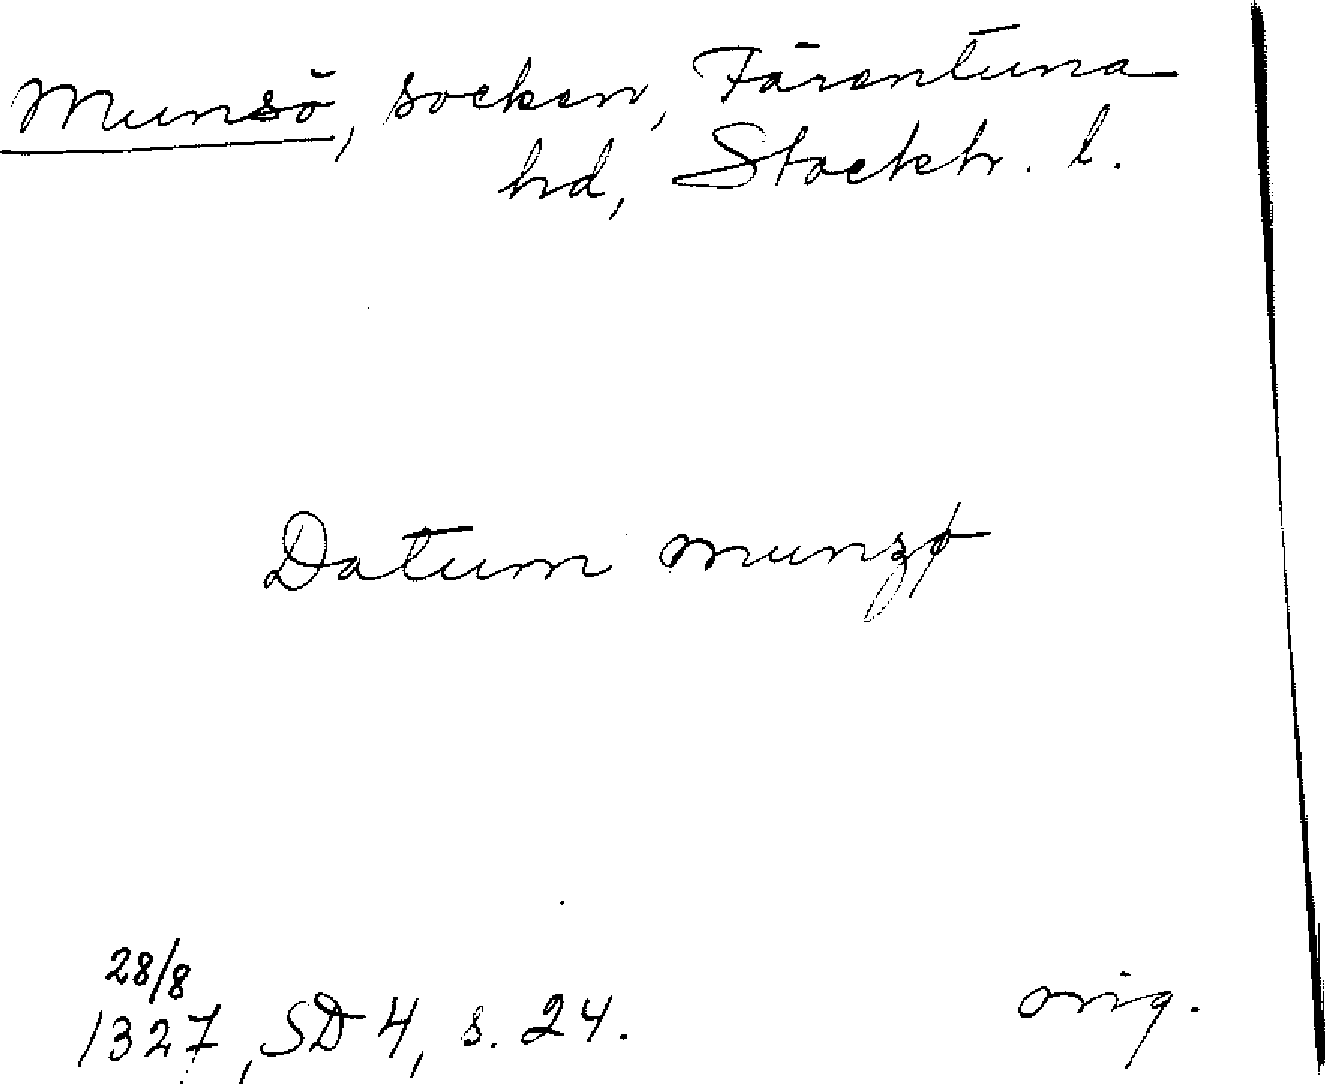 Munsö, socken, Färentuna
hd, Stockh. l.
Datum munzø
28/8
1327, SD 4, s. 24.
orig.